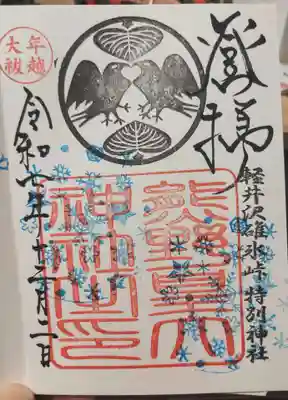 奉拝
軽井沢碓氷峠 特別神社
熊野皇大
神社之印
年越
大祓
令和七年十二月一日